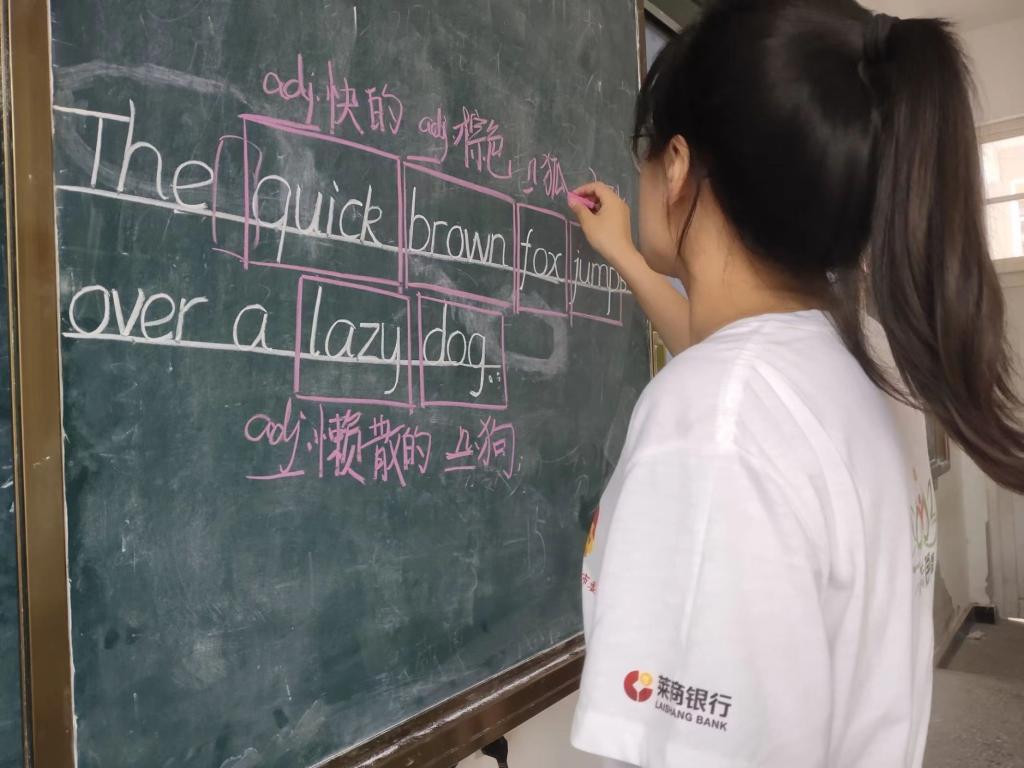 adj.快的 adj 棕色 n狐
The quick brown fox jumps
over a lazy dog.
adj.懒散的 n狗
莱商银行
LAISHANG BANK